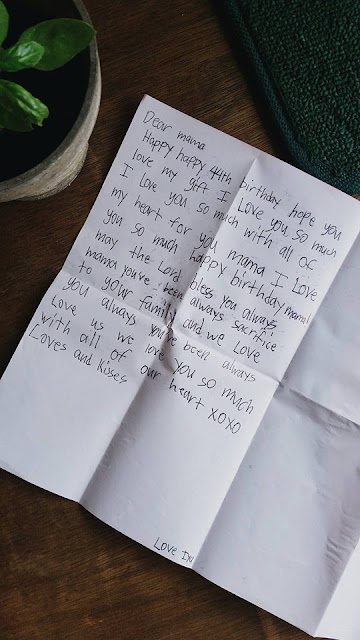 Dear mama
Happy happy 44th birthday hope you
love my gift I Love you so much
I love you so much with all of
my heart for you mama I Love
you so much happy birthday mama!
may the Lord bless you always
mama you've been always sacrifice
to your family and we love
you always you've been always
Love us we love you so much
with all of our heart xoxo
Loves and kisses
Love